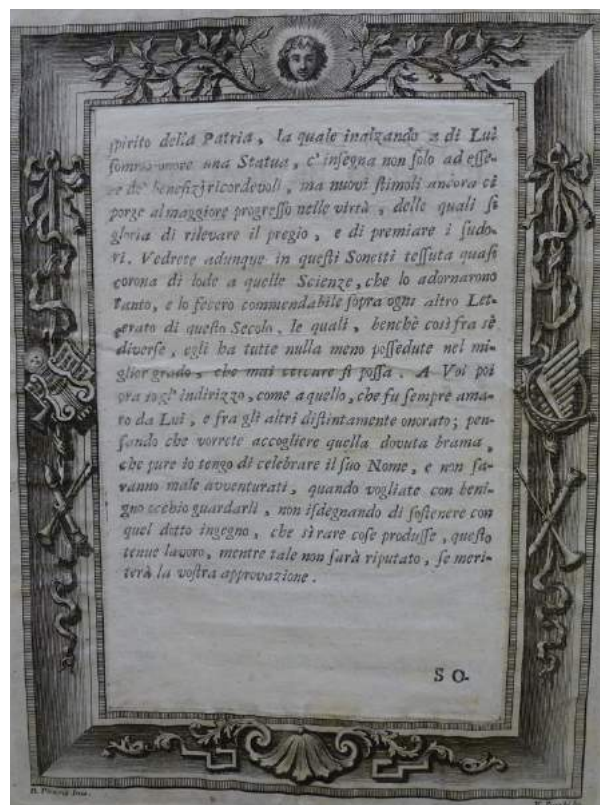 spirito della Patria, la quale inalzando a di Lui
sommo onore una Statua, c' insegna non solo ad esse-
re de' benefizj ricordevoli, ma nuovi stimoli ancora ci
porge al maggiore progresso nelle virtù, delle quali si
gloria di rilevare il pregio, e di premiare i sudo-
ri. Vedrete adunque in questi Sonetti tessuta quasi
corona di lode a quelle Scienze, che lo adornarono
tanto, e lo fecero commendabile sopra ogni altro Let-
terato di questo Secolo, le quali, benchè così fra sè
diverse, egli ha tutte nulla meno possedute nel mi-
glior grado, che mai cercare si possa. A Voi poi
ora gl' indirizzo, come a quello, che fu sempre ama-
to da Lui, e fra gli altri distintamente onorato; pen-
sando che vorrete accogliere quella dovuta brama,
che pure io tengo di celebrare il suo Nome, e non sa-
ranno male avventurati, quando vogliate con beni-
gno occhio guardarli, non isdegnando di sostenere con
quel dotto ingegno, che sì rare cose produsse, questo
tenue lavoro, mentre tale non sarà riputato, se meri-
terà la vostra approvazione.
S O-